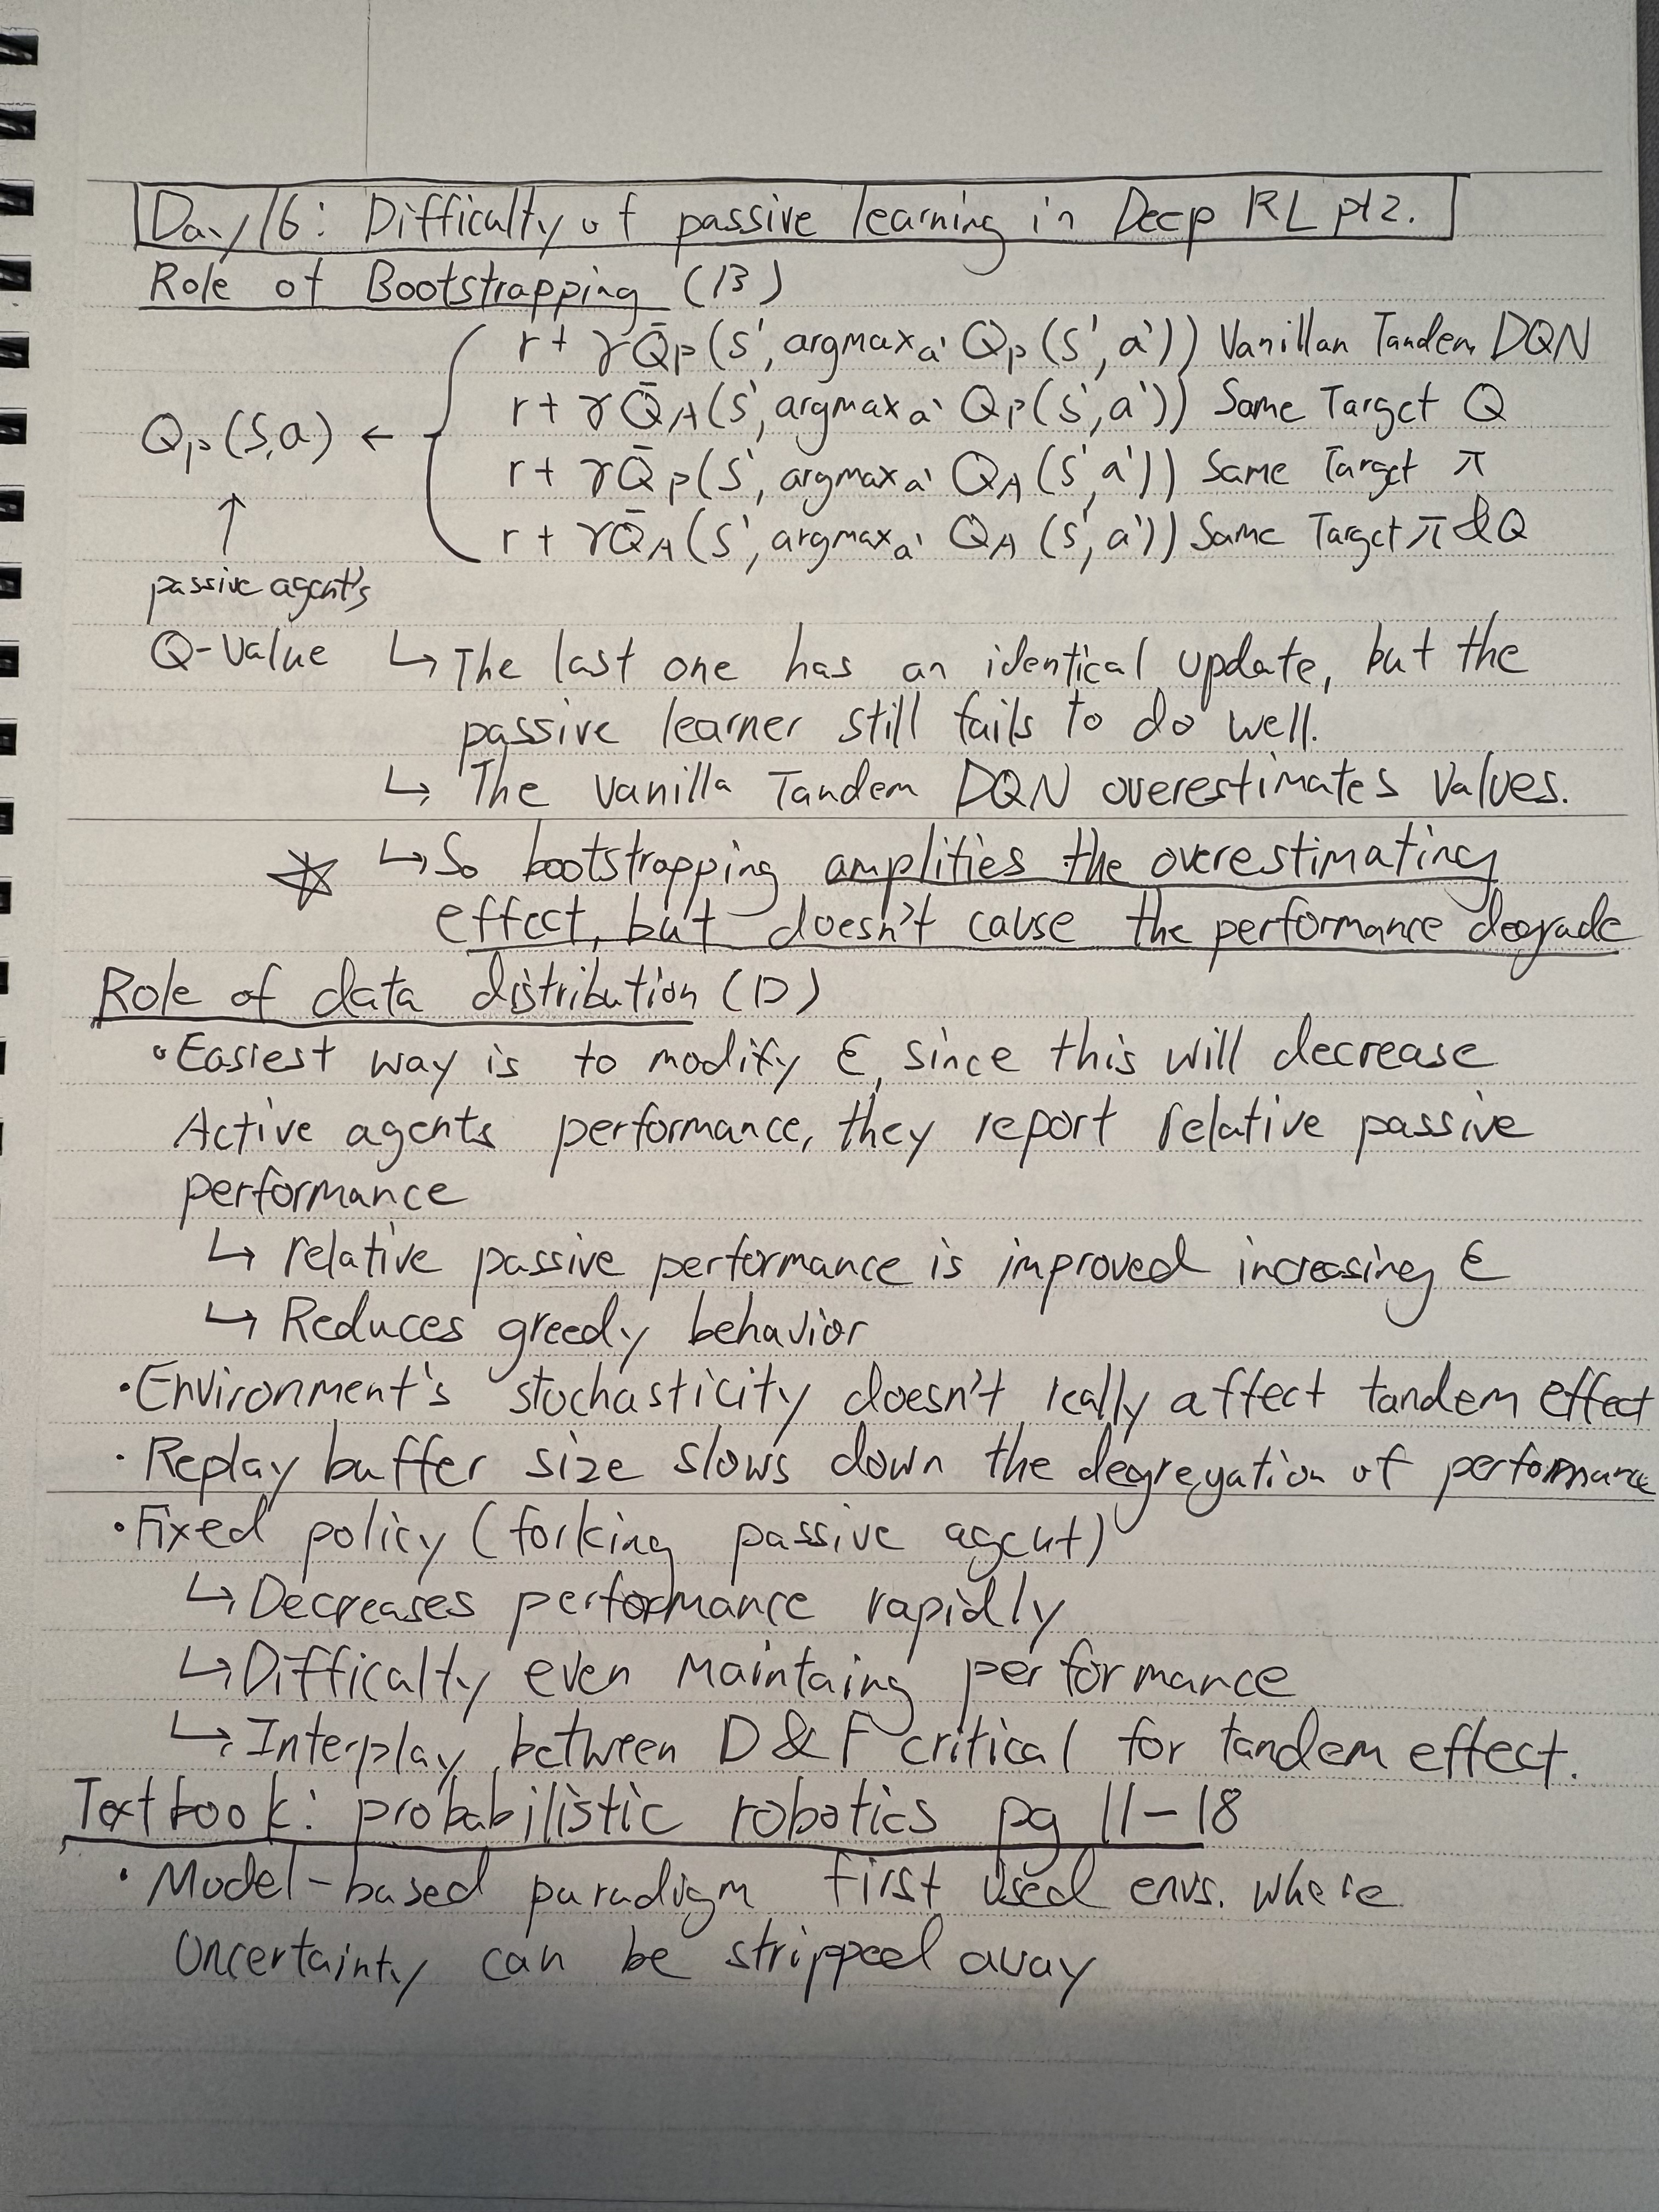 Day 16: Difficulty of passive learning in Deep RL pt2.
Role of Bootstrapping (B)
r + γQ̄P(s', argmaxa' QP(s', a')) Vanillan Tandem DQN
r + γQ̄A(s', argmaxa' QP(s', a')) Same Target Q
QP(s,a) ←
r + γQ̄P(s', argmaxa' QA(s', a')) Same Target π
r + γQ̄A(s', argmaxa' QA(s', a')) Same Target π & Q
↑
passive agent's
Q-Value ↳ The last one has an identical update, but the
passive learner still fails to do well.
↳ The Vanilla Tandem DQN overestimates values.
☆ ↳ So bootstrapping amplifies the overestimating
effect, but doesn't cause the performance degrade
Role of data distribution (D)
• Easiest way is to modify ε, since this will decrease
Active agents performance, they report relative passive
performance
↳ relative passive performance is improved increasing ε
↳ Reduces greedy behavior
• Environment's stochasticity doesn't really affect tandem effect
• Replay buffer size slows down the degregation of performance
• Fixed policy (forking passive agent)
↳ Decreases performance rapidly
↳ Difficalty even Maintaing performance
↳ Interplay between D & F critical for tandem effect.
Textbook: probabilistic robotics pg 11-18
• Model-based paradigm first used envs. where
Uncertainty can be stripped away